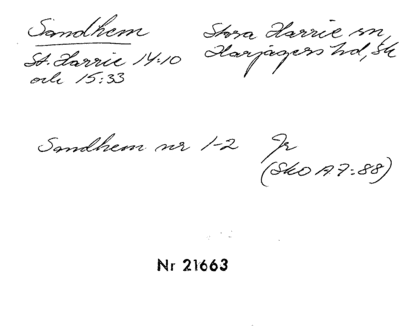 Sandhem
Stora Harrie sn,
St. Harrie 14:10
Harjagers hd, Sk
och 15:33
Sandhem nr 1-2 Jr
(SkO A7:88)
Nr 21663